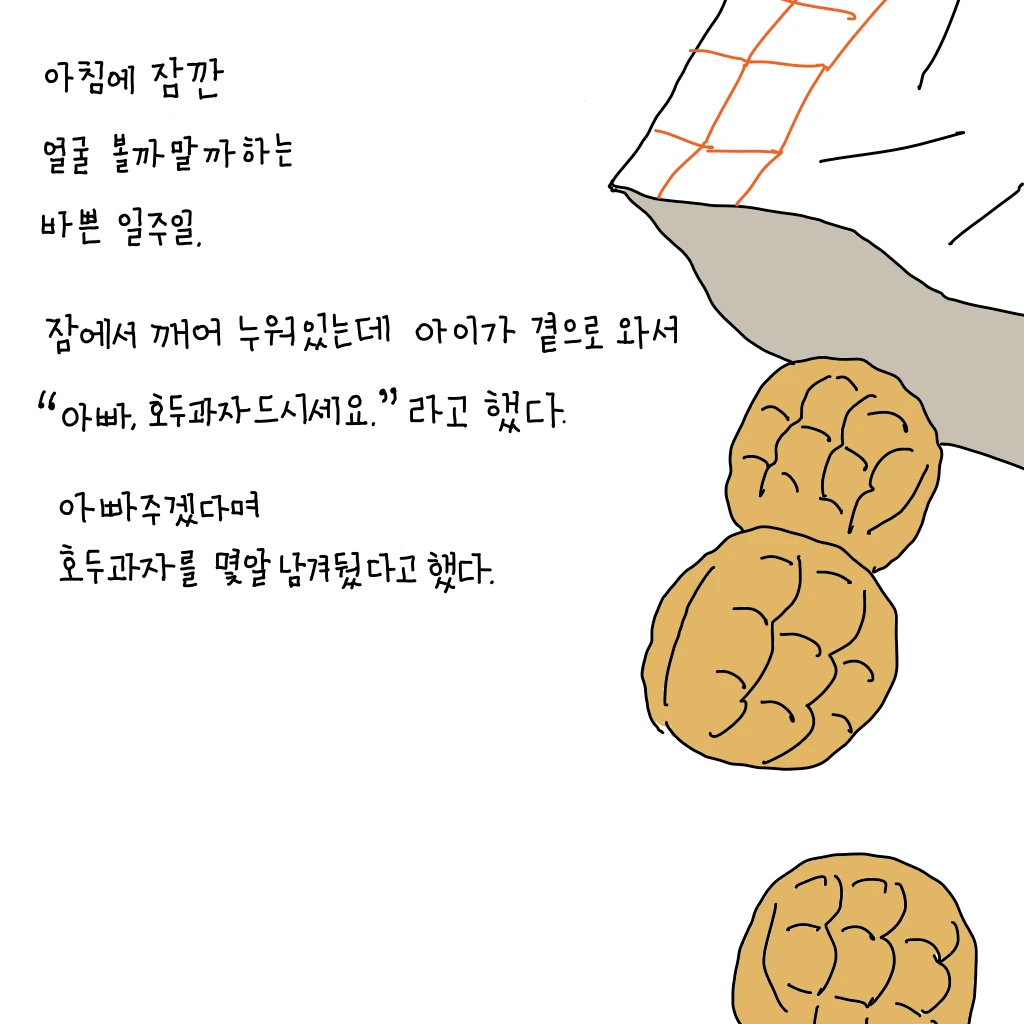 아침에 잠깐
얼굴 볼까말까하는
바쁜 일주일.
잠에서 깨어 누워있는데 아이가 곁으로 와서
“아빠, 호두과자드시세요.”라고 했다.
아빠주겠다며
호두과자를 몇알 남겨뒀다고 했다.